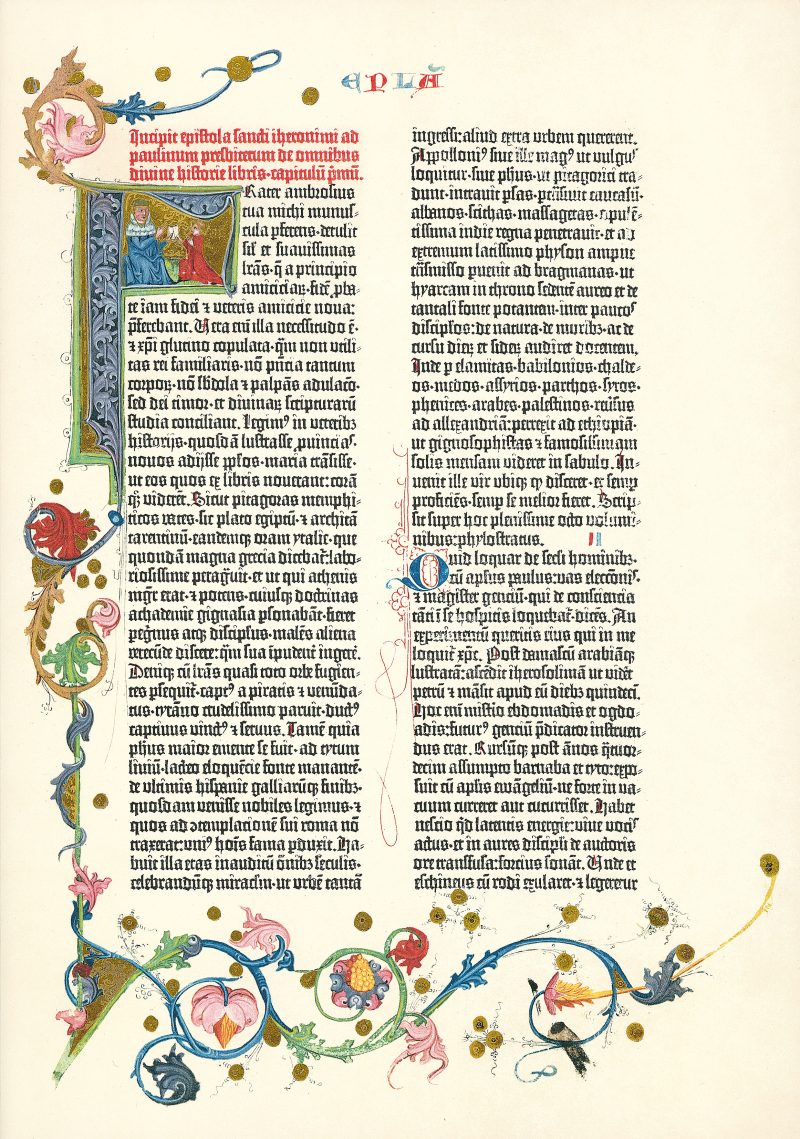 EPLĀ
Incipit epistola sancti iheronimi ad
paulinum presbiterum de omnibus
divine historie libris·capitulū p̄mū.
Frater ambrosius
tua michi munus-
cula ꝑferens·detulit
sil' et suauissimas
lrās·q̄ a principio
amiciciaꝝ·fidē ꝓba-
te iam fidei ⁊ veteris amicicie noua:
p̄ferebant. Vera eni illa necessitudo ē·
⁊ xp̄i glutino copulata·qm̄ non vtili-
tas rei familiaris·nō p̄ncia tantum
corporꝝ·nō sbdola ⁊ palpās adulacō·
sed dei timor·et diuinaꝝ scripturarū
studia conciliant. Legimꝰ in veteribꝫ
historijs·quosdā lustrasse ꝓuincias·
nouos adijsse ppl̄os·maria trāsisse·
ut eos quos ex libris nouerant:corā
qꝫ viderēt. Sicut pitagoras memphi-
ticos vates·sic plato egiptū·⁊ architā
tarentinū·eandemqꝫ oram ytalie·que
quondā magna grecia dicebat̄·labo-
riosissime peragrauit·et ut qui athenis
mgr̄ erat·⁊ potens·cuiusqꝫ doctrinas
achademie gignasia ꝑsonabāt·fieret
peg̃nus atqꝫ discipulus·malēs aliena
verecūde discere:qm̄ sua īpudent̄ ingerē.
Deniqꝫ cū lrās quasi toto orbe fugien-
tes ꝑsequit̄·captꝰ a piratis ⁊ venūda-
tus·tyrāno crudelissimo paruit·ductꝰ
captiuus vinctꝰ ⁊ seruus. Tamē quia
ph̄us maior emente se fuit·ad tytum
liuiū·lacteo eloquēcie fonte manantē·
de vltimis hispanie galliarūqꝫ finibꝫ·
quosdam venisse nobiles legimus·⁊
quos ad ꝯtemplacionē sui roma nō
traxerat:vniꝰ hoīs fama ꝑduxit. Ha-
buit illa etas inauditū ōnibꝫ seculis·
celebrandūqꝫ miraclm̄·ut vrbē tantā
ingressi:aliud extra vrbem quererent.
Appolloniꝰ siue ille magꝰ ut vulgus
loquitur·siue ph̄us·ut pitagorici tra-
dunt·intrauit ꝑsas·ꝑtrāsiuit caucasū·
albanos·scithas·massagetas·opulē-
tissima indie regna penetrauit·et ad
extremum latissimo physon ampne
trāsmisso ꝑuenit ad bragmanas·ut
hyarcam in throno sedentē aureo et de
tantali fonte potantem·inter paucos
discipl̄os:de natura·de moribꝫ·ac de
cursu dierꝝ et siderꝝ audiret docentem.
Inde ꝑ elamitas·babilonios·chalde-
os·medos·assyrios·parthos·syros·
phenices·arabes·palestinos·reūsus
ad allexandriā:perrexit ad ethiopiā·
ut gignosophistas ⁊ famosissimam
solis mensam videret in sabulo. In-
uenit ille vir vbiqꝫ qd̄ disceret·et semꝑ
proficiēs·semꝑ se melior fieret. Scrip-
sit super hoc plenissime octo volumi-
nibus:phylostratus. II
Quid loquar de sec̄li hominibꝫ·
cū apl̄us paulus:vas electōnis·
⁊ magister genciū·qui de consciencia
tāti ī se hospitis loquebat̄·dicēs. An
experimentū queritis eius qui in me
loquit̄ xp̄c. Post damascū arabiāqꝫ
lustratā:ascēdit iherosolimā ut vidēt
petrū ⁊ māsit apud eū diebꝫ quindecī.
Hoc eni mistio ebdomadis et ogdo-
adis:futurꝰ genciū p̄dicator instruen-
dus erat. Rursūqꝫ post ānos qt̄uor-
decim assumpto barnaba et tyto:expo-
suit cū apl̄is ewāgeliū·ne forte in va-
cuum curreret aut cucurrisset. Habet
nescio qd̄ latentis energie:viue vocis
actus·et in aures discipli de auctoris
ore transfusa:forcius sonāt. Vnde et
eschineus cū rodi exularet·⁊ legeretur